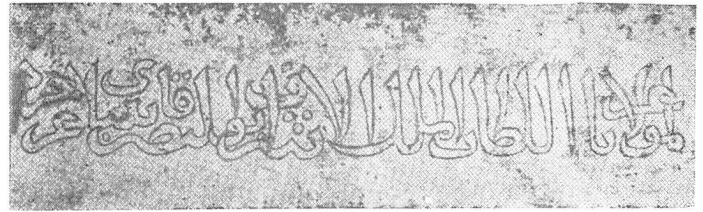 عز لمولانا السلطان الملك الاشرف ابو النصر قايتباي عز نصره